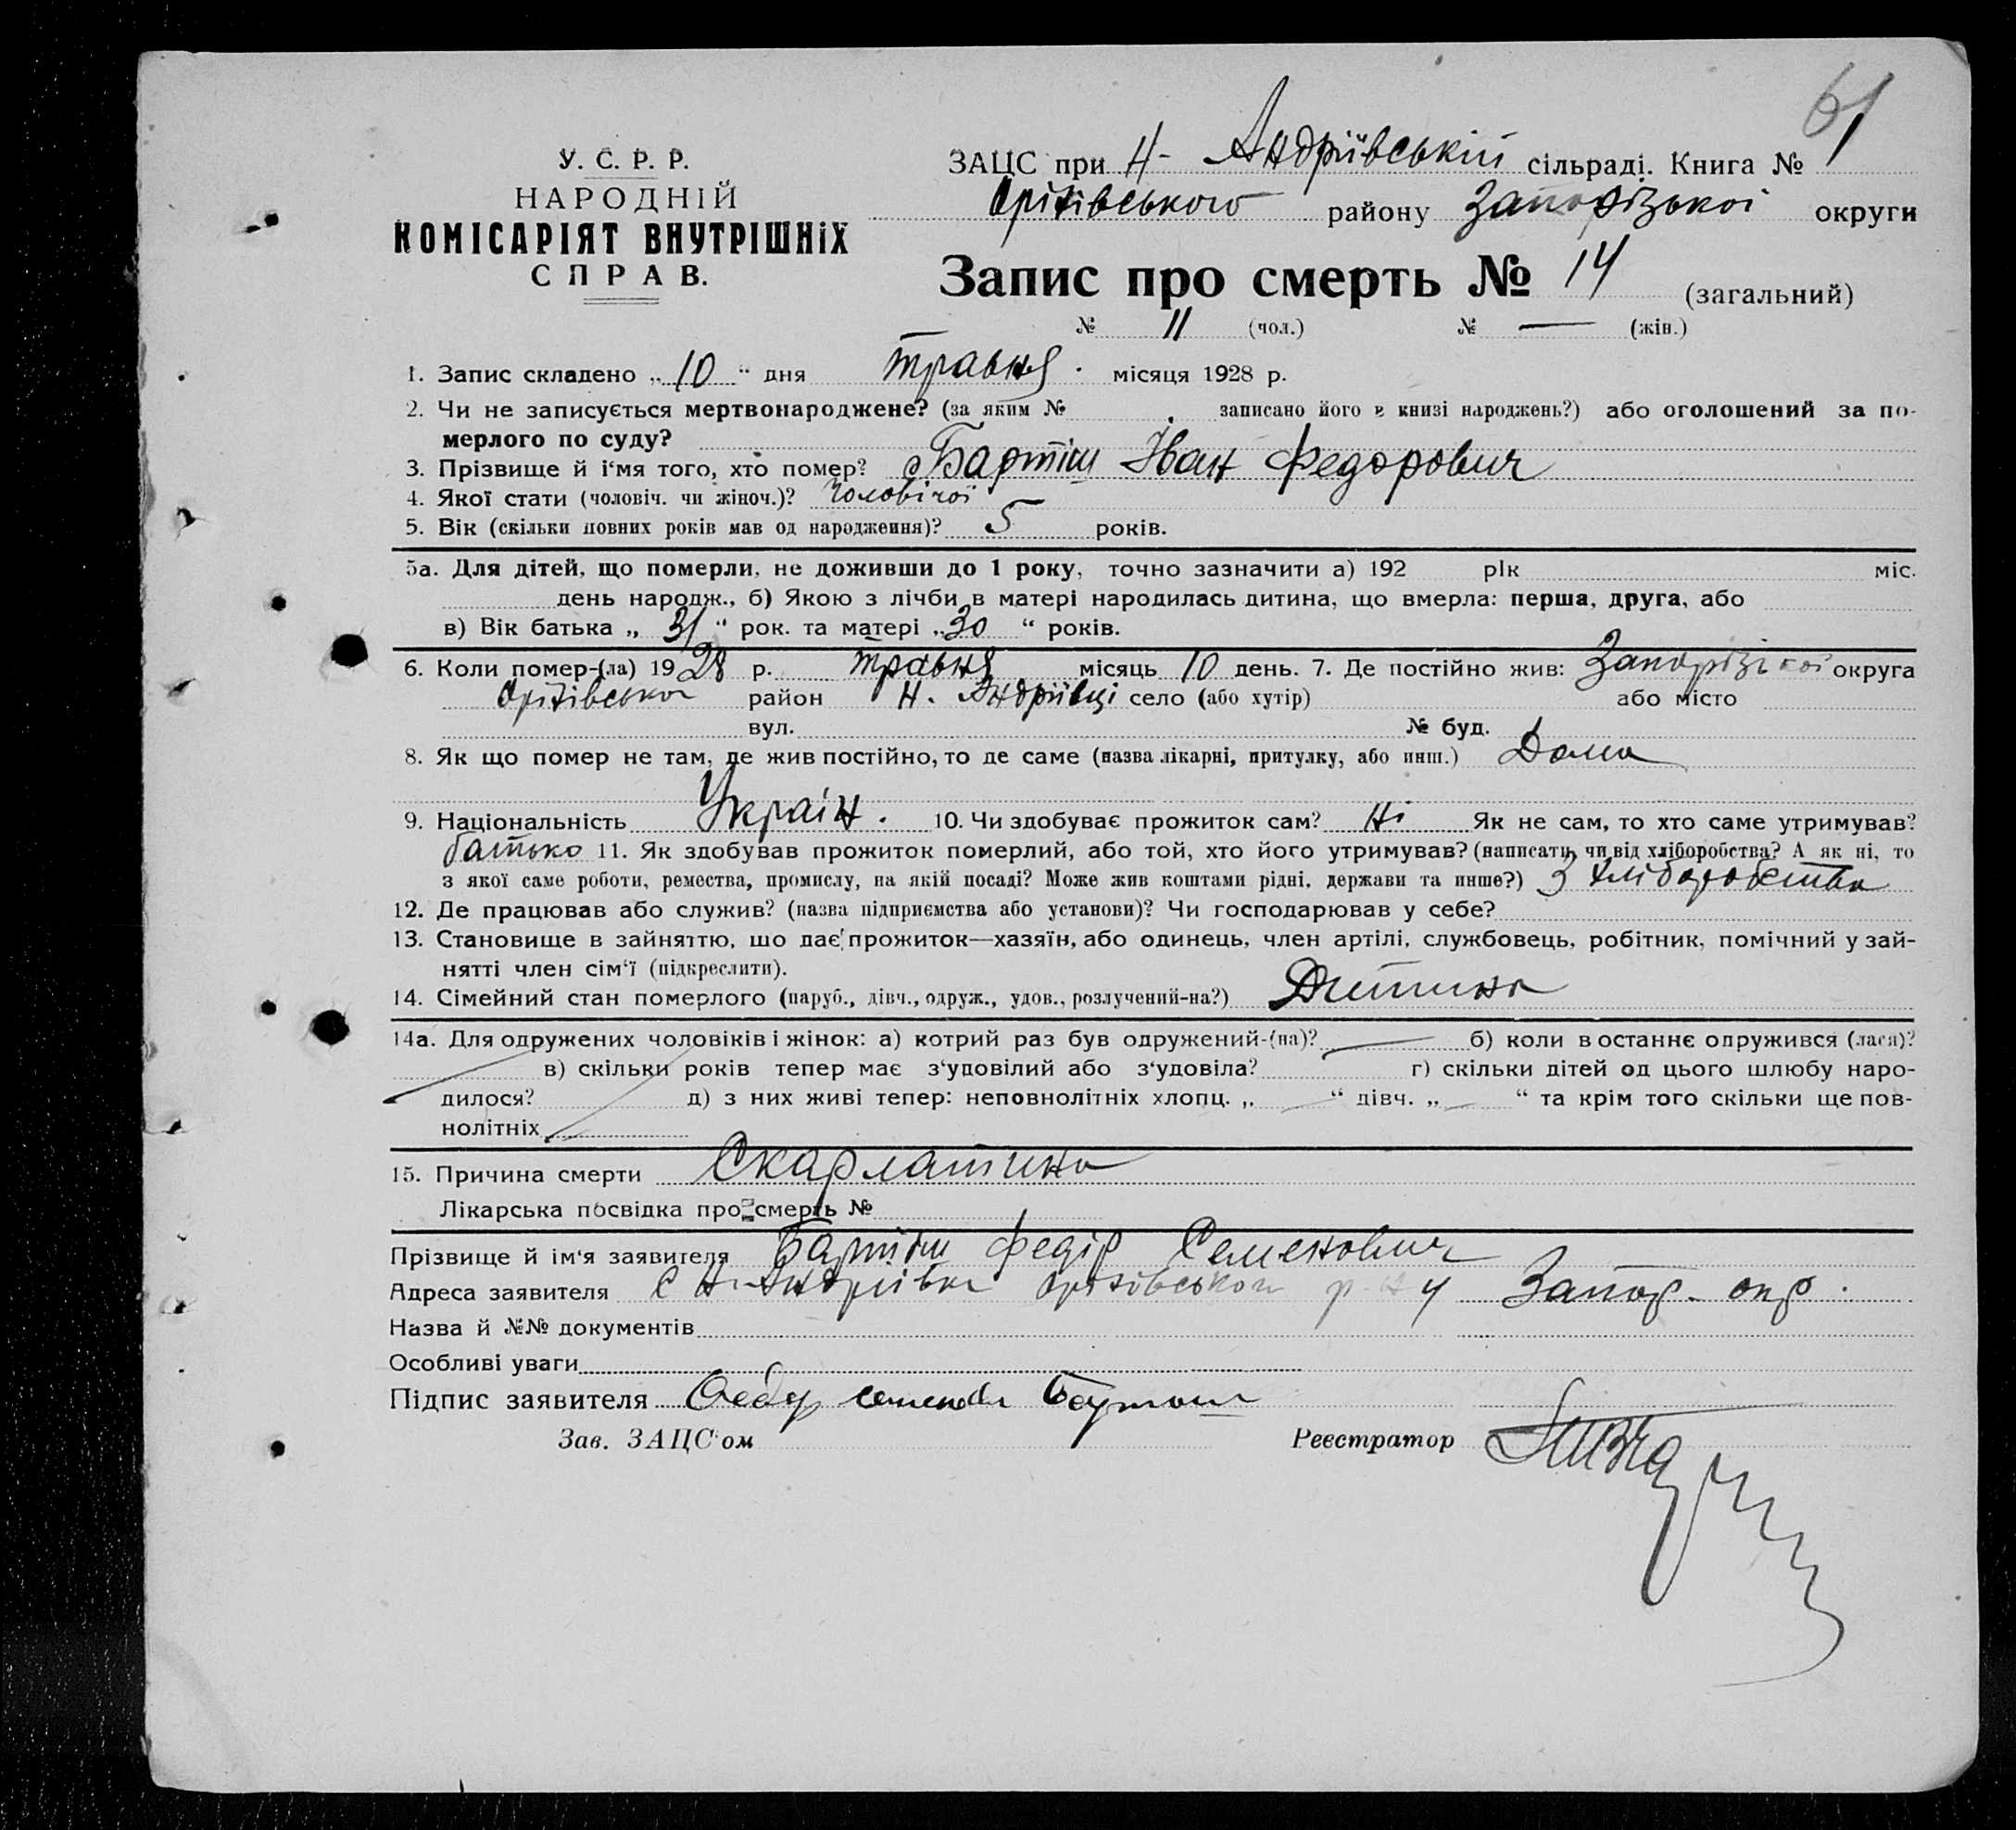 61
У. С. Р. Р.
НАРОДНІЙ
КОМІСАРІЯТ ВНУТРІШНіХ
СПРАВ.
ЗАЦС при Н- Андріївській сільраді. Книга № 1
Оріхівського району Запорізької округи
Запис про смерть № 14 (загальний)
№ 11 (чол.) № — (жін.)
1. Запис складено „10“ дня травня місяця 1928 р.
2. Чи не записується мертвонароджене? (за яким № записано його в книзі народжень?) або оголошений за по-
мерлого по суду?
3. Прізвище й і‘мя того, хто помер? Бартіш Іван Федорович
4. Якої стати (чоловіч. чи жіноч.)? Чоловічої
5. Вік (скільки повних років мав од народження)? 5 років.
5а. Для дітей, що померли, не доживши до 1 року, точно зазначити а) 192 рік міс.
день народж., б) Якою з лічби в матері народилась дитина, що вмерла: перша, друга, або
в) Вік батька „31“ рок. та матері „30“ років.
6. Коли помер-(ла) 1928 р. травня місяць 10 день. 7. Де постійно жив: Запорізької округа
Оріхівсько район Н. Андріївці село (або хутір) або місто
вул. № буд.
8. Як що помер не там, де жив постійно, то де саме (назва лікарні, притулку, або инш.) Дома
9. Національність Україн. 10. Чи здобуває прожиток сам? Ні Як не сам, то хто саме утримував?
батько 11. Як здобував прожиток померлий, або той, хто його утримував? (написать, чи від хліборобства? А як ні, то
з якої саме роботи, ремества, промислу, на якій посаді? Може жив коштами рідні, держави та инше?) З хліборобства
12. Де працював або служив? (назва підприємства або установи)? Чи господарював у себе?
13. Становище в зайняттю, що дає прожиток—хазяїн, або одинець, член артілі, службовець, робітник, помічний у зай-
нятті член сім‘ї (підкреслити).
14. Сімейний стан померлого (паруб., дівч., одруж., удов., розлучений-на?) Дитина
14а. Для одружених чоловіків і жінок: а) котрий раз був одружений-(на)? — б) коли в останнє одружився (лася)?
в) скільки років тепер має з‘удовілий або з‘удовіла? г) скільки дітей од цього шлюбу наро-
дилося? д) з них живі тепер: неповнолітніх хлопц. „—“ дівч. „—“ та крім того скільки ще пов-
нолітніх
15. Причина смерти Скарлатина
Лікарська посвідка про смерть №
Прізвище й ім‘я заявителя Бартіш Федір Семенович
Адреса заявителя с Н-Андріївка Оріхівсього р-ну Запор. окр.
Назва й №№ документів
Особливі уваги
Підпис заявителя Федор Бартош
Зав. ЗАЦС‘ом Реєстратор